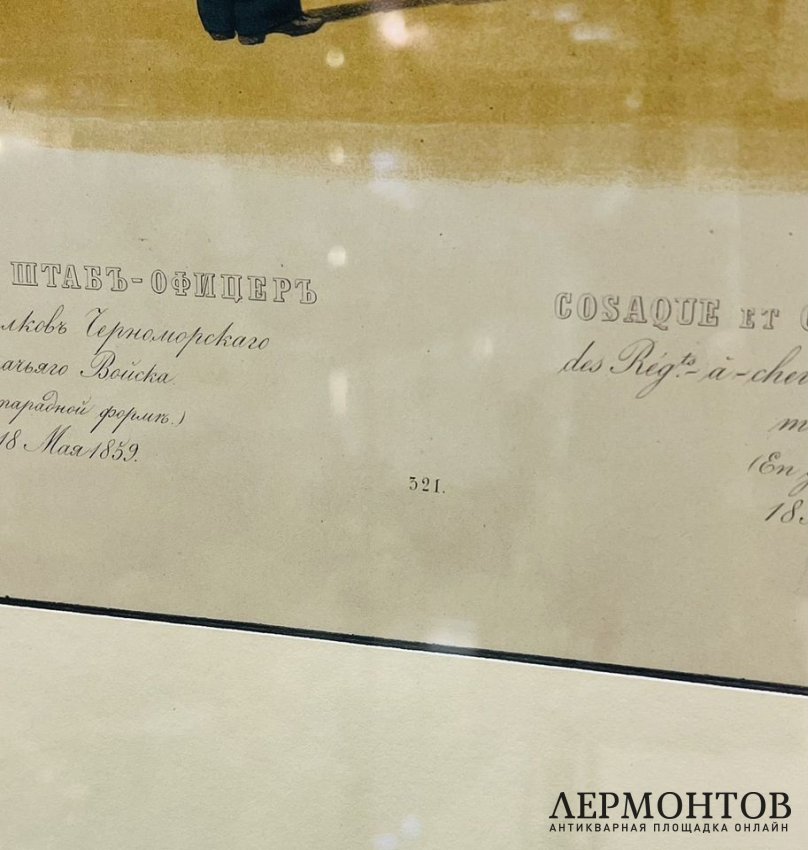 ШТАБЪ-ОФИЦЕРЪ
лковъ Черноморскаго
ачьяго Войска.
парадной формѣ.)
18 Мая 1859.
321.
COSAQUE ET
des Régts-à-che
(En
ЛЕРМОНТОВ
АНТИКВАРНАЯ ПЛОЩАДКА ОНЛАЙН